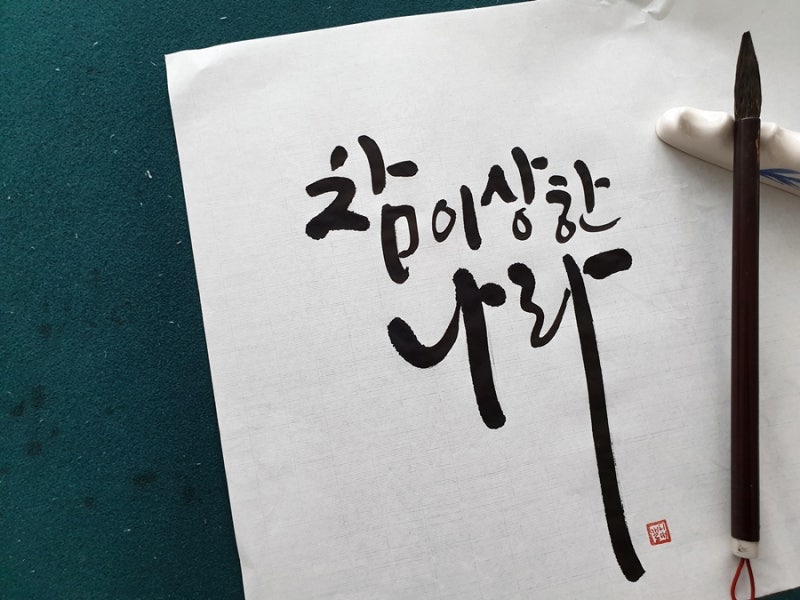 참 이상한
나라